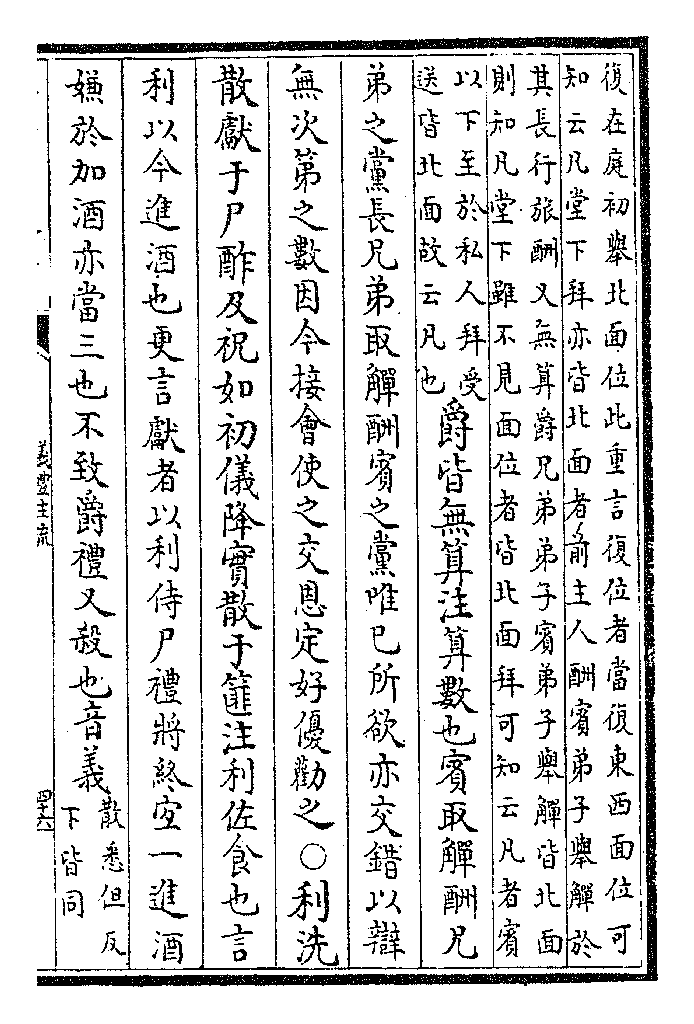 復在庭初舉北面位此重言復位者當復東西面位可
知云凡堂下拜亦皆北面者前主人酬賓弟子舉觶於
其長行旅酬又無算爵兄弟弟子賓弟子舉觶皆北面
則知凡堂下雖不見面位者皆北面拜可知云凡者賓
以下至於私人拜受
送皆北面故云凡也
爵皆無算注算數也賓取觶酬兄
弟之黨長兄弟取觶酬賓之黨唯已所欲亦交錯以辯
無次第之數因今接會使之交恩定好優勸之○利洗
散獻于尸酢及祝如初儀降實散于篚注利佐食也言
利以今進酒也更言獻者以利侍尸禮將終宐一進酒
嫌於加酒亦當三也不致爵禮又殺也音義
散悉但反
下皆同
四十六